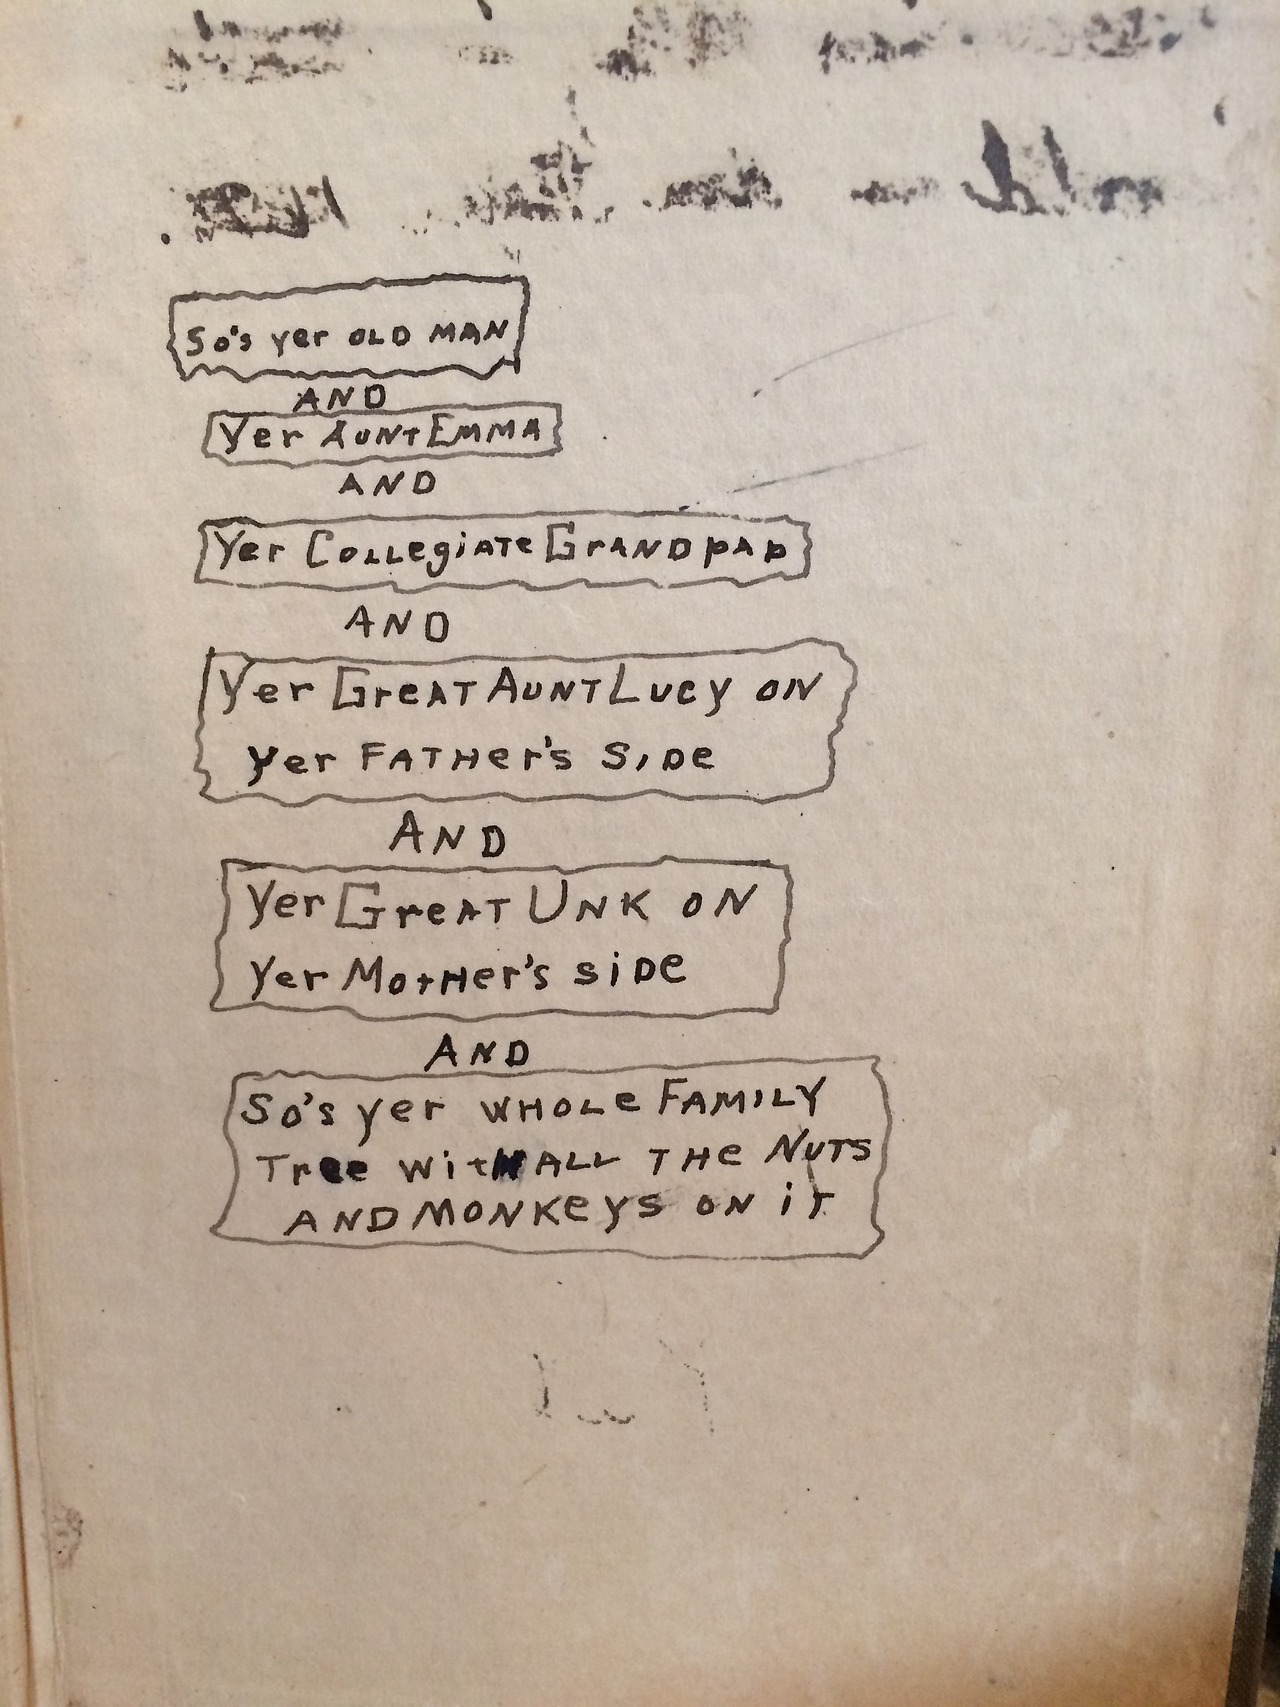 So's yer OLD MAN
AND
Yer AUNT EMMA
AND
Yer COLLegiATe GrANDpAp
AND
Yer GreAT AUNT Lucy ON
yer FATHer's SiDe
AND
Yer GreAT UNK ON
Yer MotHer's siDe
AND
So's yer WHOLe FAMILY
Tree WitH ALL THe NUTS
AND MONKeys ON iT